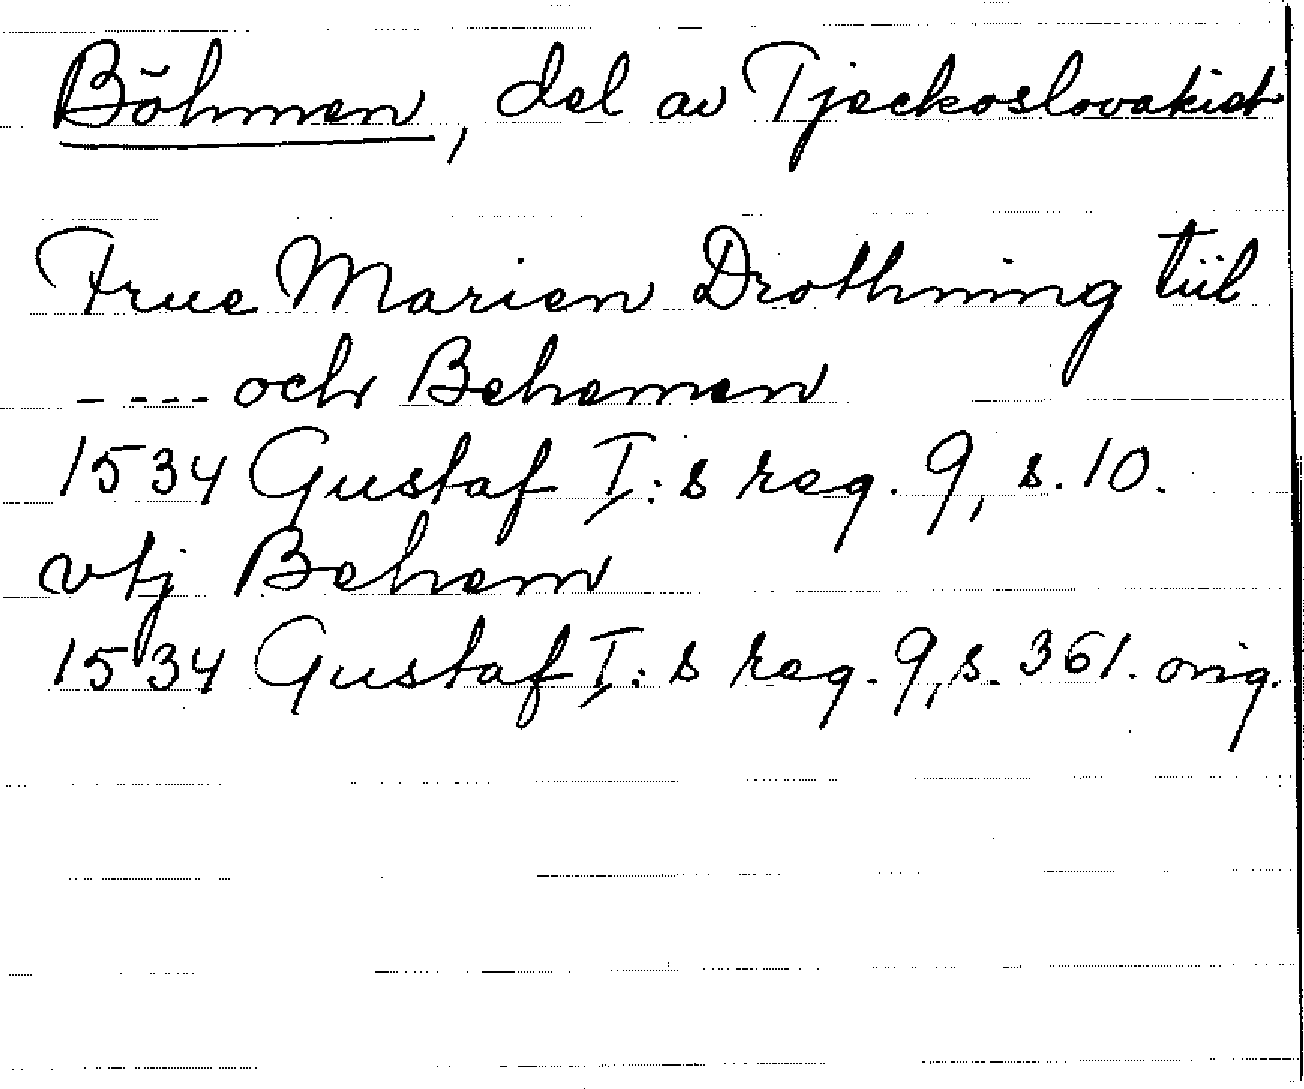 Böhmen, del av Tjeckoslovakiet
Frue Marien Drothning tiil
- --- och Behemen
1534 Gustaf I:s reg. 9, s. 10.
vtj Behem
1534 Gustaf I:s reg. 9, s. 361. orig.